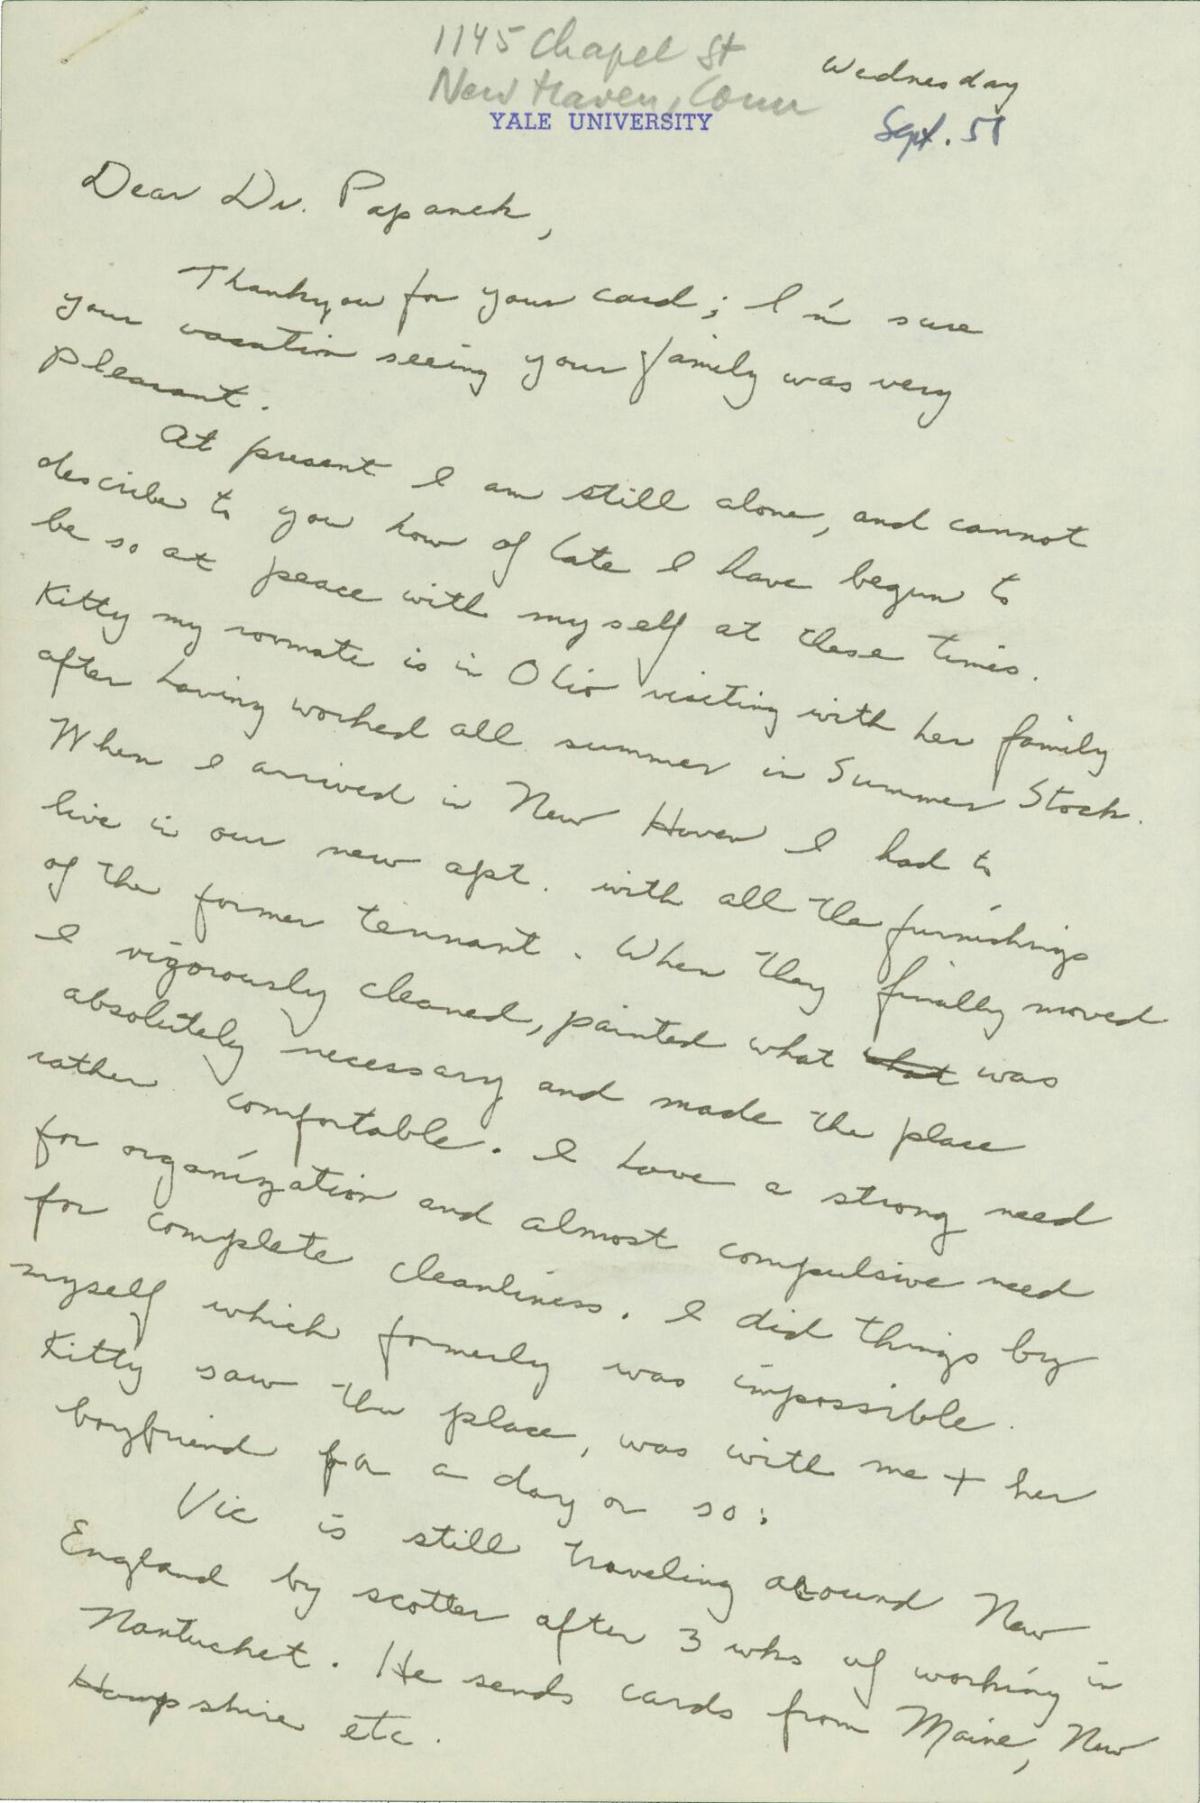 1145 Chapel St
New Haven, Conn
YALE UNIVERSITY
Wednesday
Sept. 51
Dear Dr. Papanek,
Thankyou for your card; I'm sure
your vacation seeing your family was very
pleasant.
At present I am still alone, and cannot
describe to you how of late I have begun to
be so at peace with myself at these times.
Kitty my roomate is in Ohio visiting with her family
after having worked all summer in Summer Stock.
When I arrived in New Haven I had to
live in our new apt. with all the furnishings
of the former tennant. When they finally moved
I vigorously cleaned, painted what what was
absolutely necessary and made the place
rather comfortable. I have a strong need
for organization and almost compulsive need
for complete cleanliness. I did things by
myself which formerly was impossible.
Kitty saw the place, was with me + her
boyfriend for a day or so.
Vic is still traveling around New
England by scotter after 3 wks of working in
Nantucket. He sends cards from Maine, New
Hampshire etc.